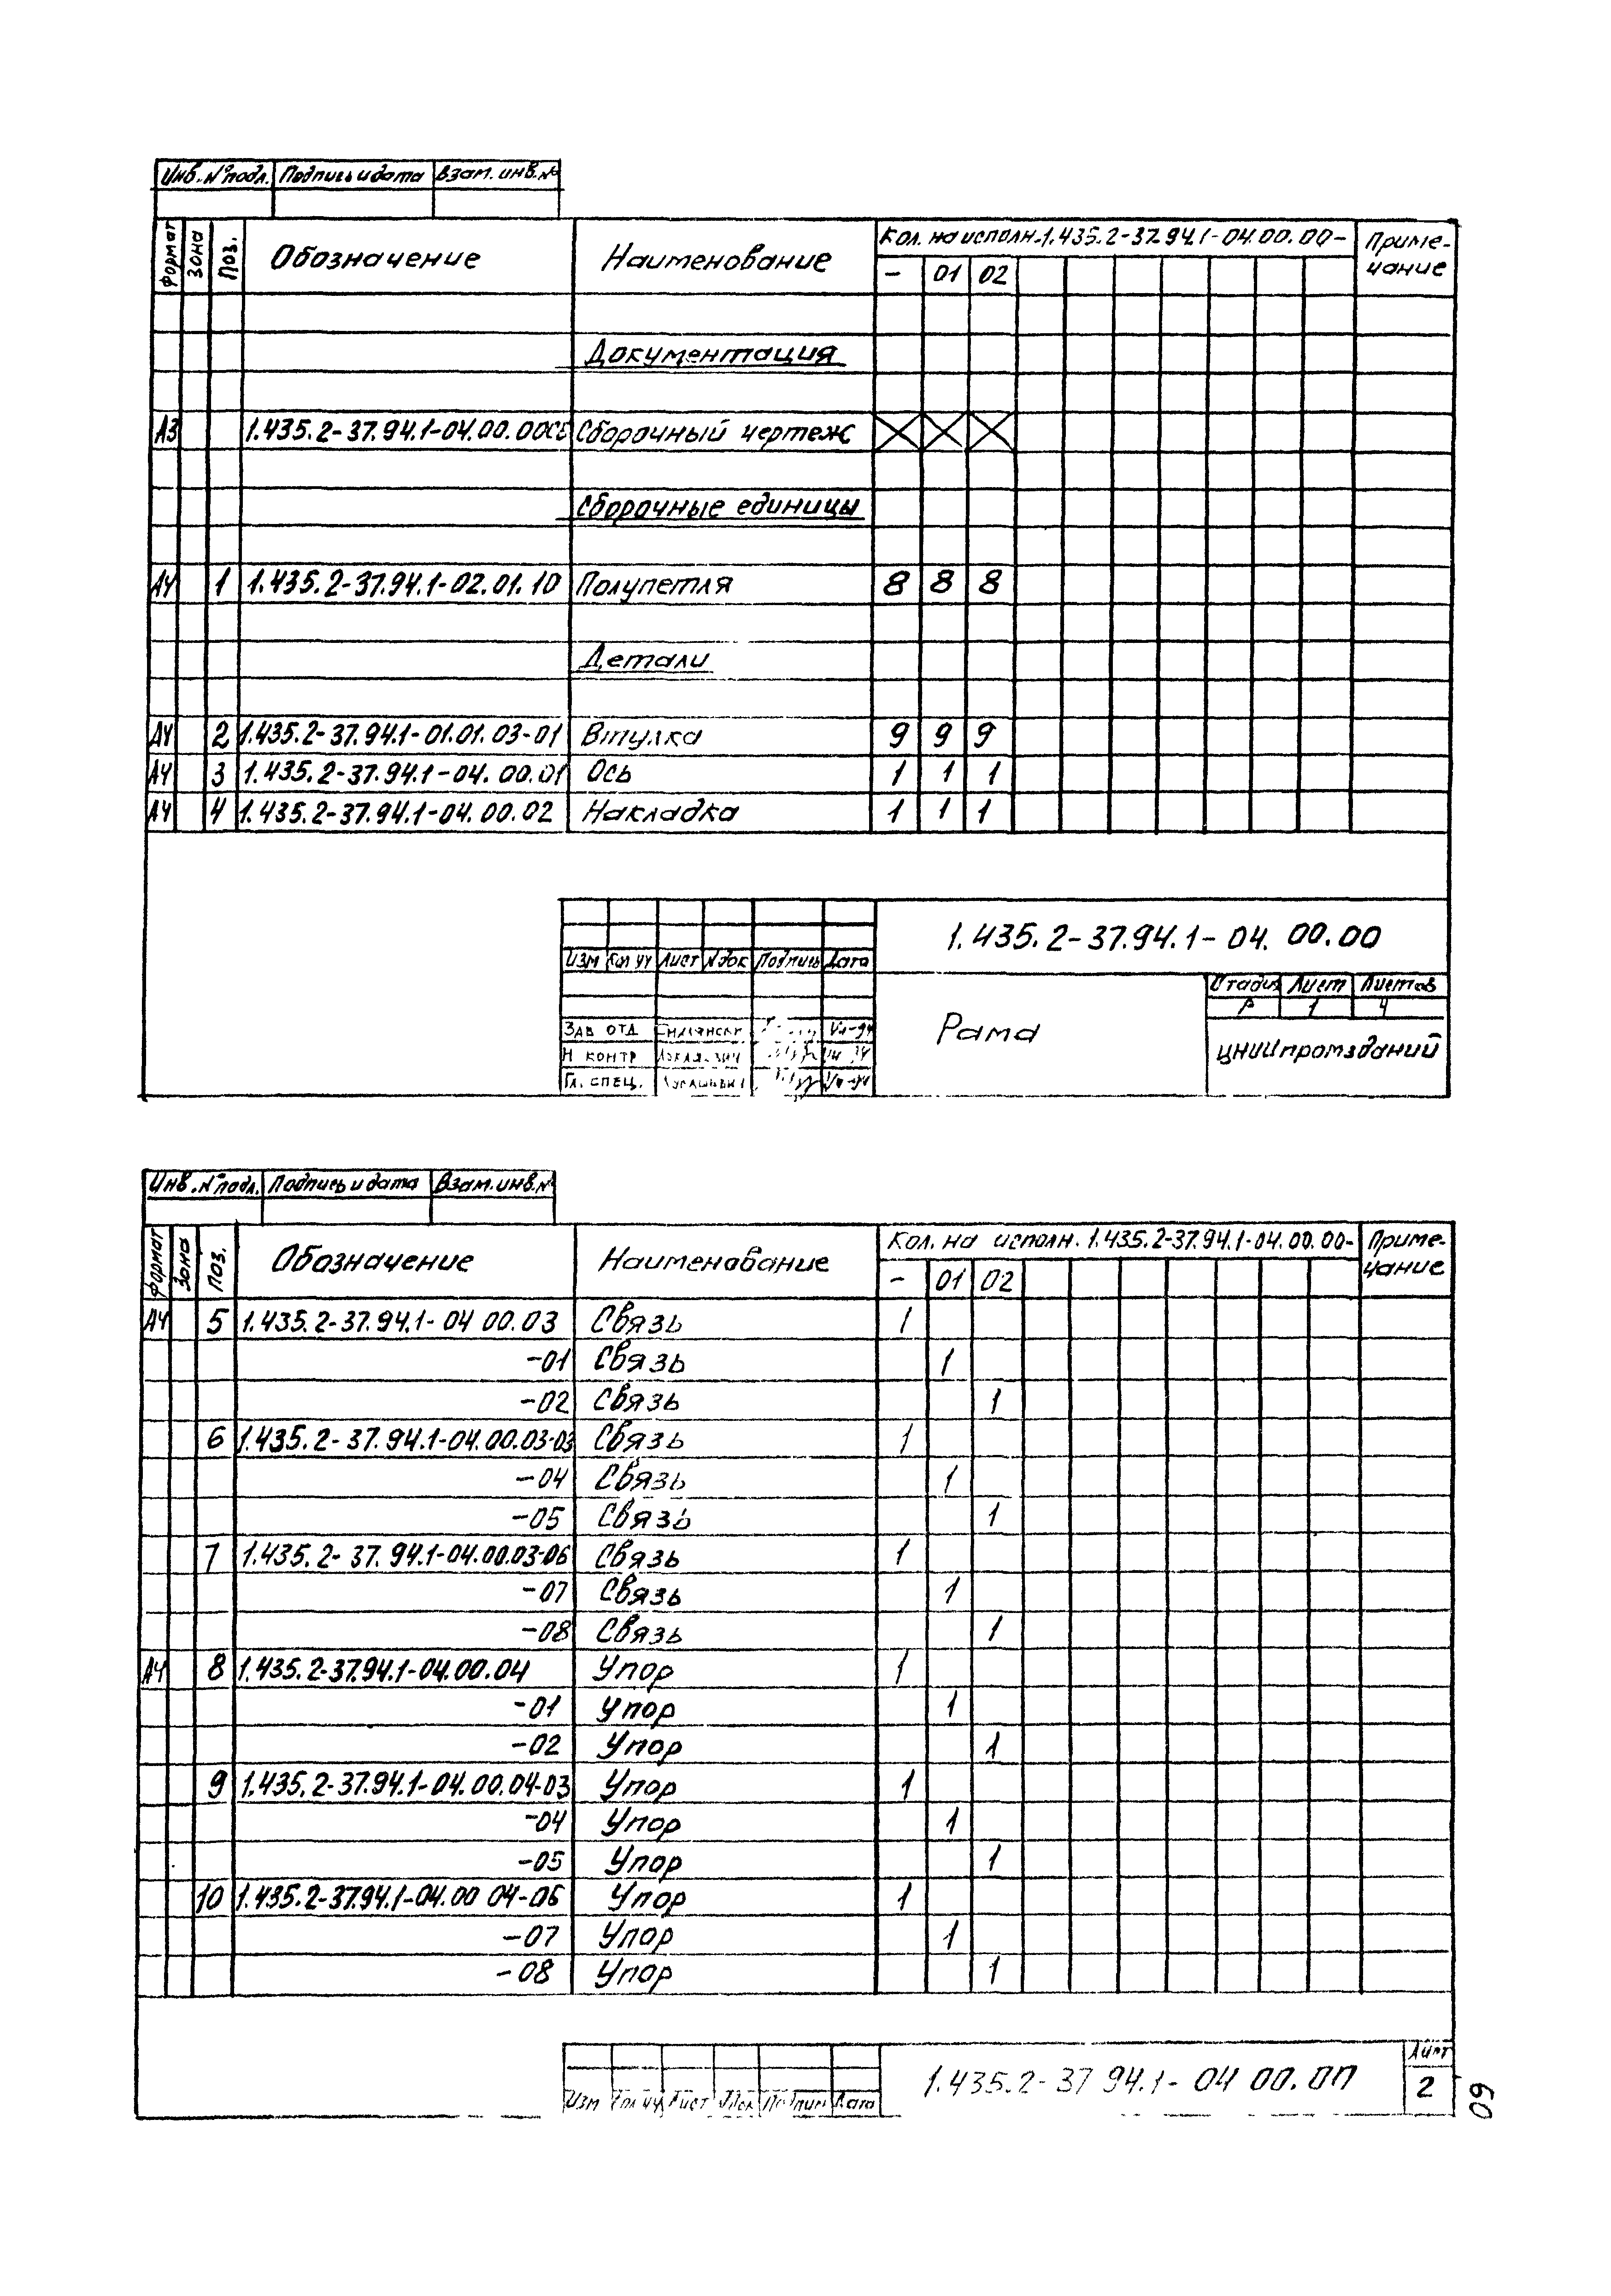 Инв. № подл. Подпись и дата Взам. инв. №
Формат Зона Поз. Обозначение Наименование Кол. на исполн. 1.435.2-37.94.1-04.00.00- Примечание
- 01 02
Документация
А3 1.435.2-37.94.1-04.00.00СБ Сборочный чертеж
Сборочные единицы
А4 1 1.435.2-37.94.1-02.01.10 Полупетля 8 8 8
Детали
А4 2 1.435.2-37.94.1-01.01.03-01 Втулка 9 9 9
А4 3 1.435.2-37.94.1-04.00.01 Ось 1 1 1
А4 4 1.435.2-37.94.1-04.00.02 Накладка 1 1 1
1.435.2-37.94.1-04.00.00
Изм Кол уч Лист №док Подпись Дата
Стадия Лист Листов
Р 1 4
Рама
ЦНИИпромзданий
Зав отд
Н контр
Гл. спец.
Инв. № подл. Подпись и дата Взам. инв. №
Формат Зона Поз. Обозначение Наименование Кол. на исполн. 1.435.2-37.94.1-04.00.00- Примечание
- 01 02
А4 5 1.435.2-37.94.1-04 00.03 Связь 1
-01 Связь 1
-02 Связь 1
6 1.435.2-37.94.1-04.00.03-03 Связь 1
-04 Связь 1
-05 Связь 1
7 1.435.2-37.94.1-04.00.03-06 Связь 1
-07 Связь 1
-08 Связь 1
А4 8 1.435.2-37.94.1-04.00.04 Упор 1
-01 Упор 1
-02 Упор 1
9 1.435.2-37.94.1-04.00.04-03 Упор 1
-04 Упор 1
-05 Упор 1
10 1.435.2-37.94.1-04.00 04-06 Упор 1
-07 Упор 1
-08 Упор 1
Изм Кол уч Лист №док Подпись Дата
1.435.2-37 94.1-04 00.00
Лист
2
60